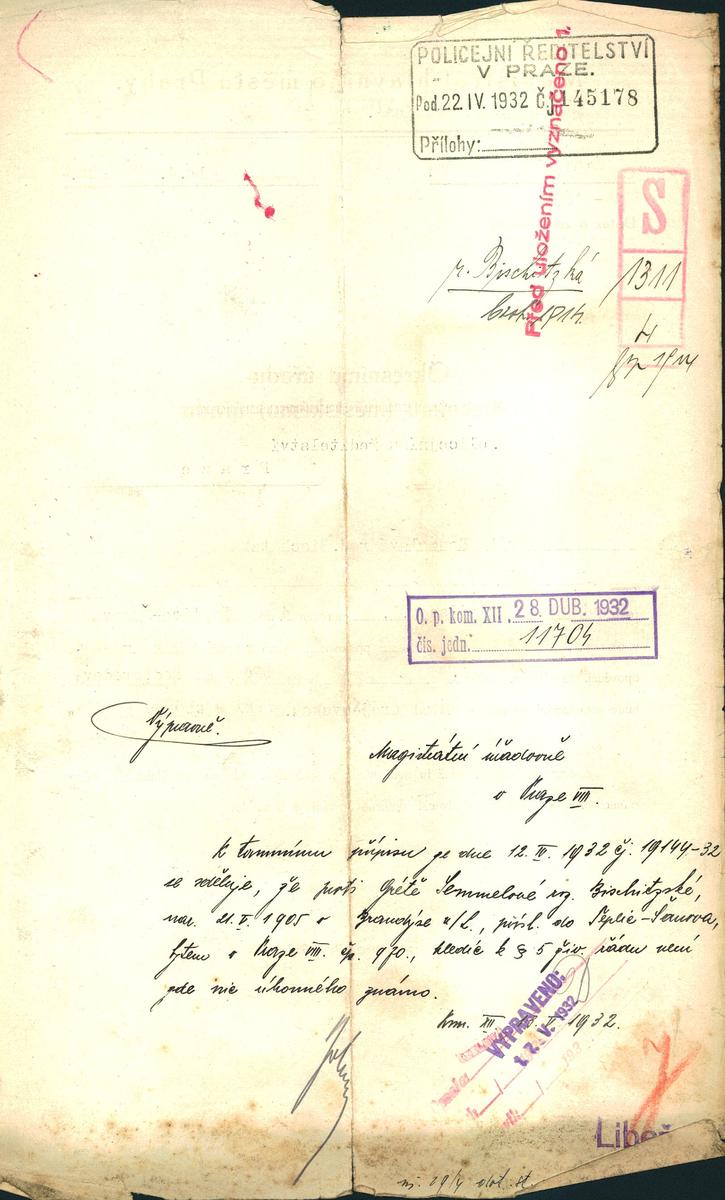 POLICEJNÍ ŘEDITELSTVÍ
V PRAZE.
Pod. 22. IV. 1932 Č.j. 145178
Přílohy:
Před uložením vyznačeno 1.
S
r. Bischitzká
1311
4
O. p. kom. XII. 28. DUB. 1932
čís. jedn. 11704
Výpravně.
Magistrátní úřadovně
v Praze VIII.
K tamnímu přípisu ze dne 12. IV. 1932 čj. 19144-32
se sděluje, že proti Grétě Semmelové roz. Bischitzské,
nar. 21. V. 1905 v Brandýse n/L., přísl. do Teplic-Šanova,
bytem v Praze VIII. čp. 970., hledíc k § 5 živ. řádu není
zde nic úhonného známo.
Kom. XII. V. 1932.
VYPRAVENO:
1 7. V. 1932
Libe
29/4